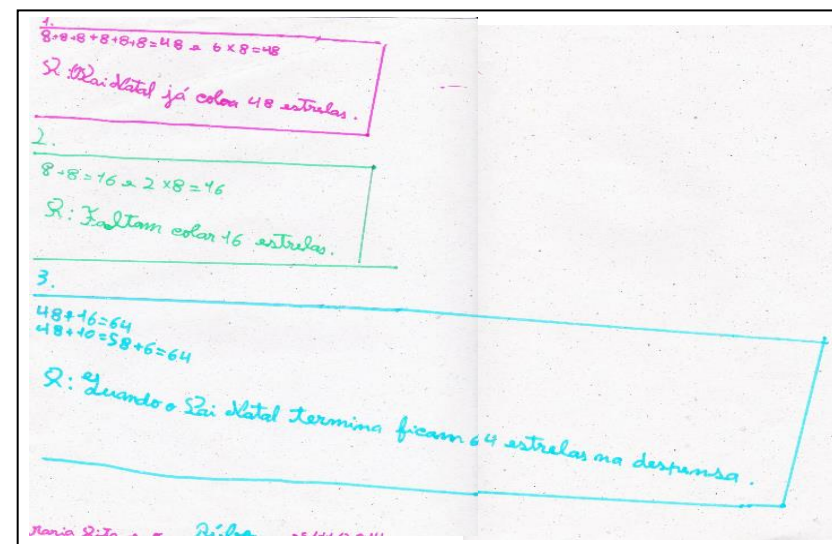 1.
8+8+8+8+8+8=48 e 6 x 8=48
R Pai Natal já colou 48 estrelas.
2.
8+8=16 e 2 x8=16
R: Faltam colar 16 estrelas.
3.
48+16=64
48+10=58+6=64
R: Quando o Pai Natal termina ficam 64 estrelas na despensa.
Maria Rita